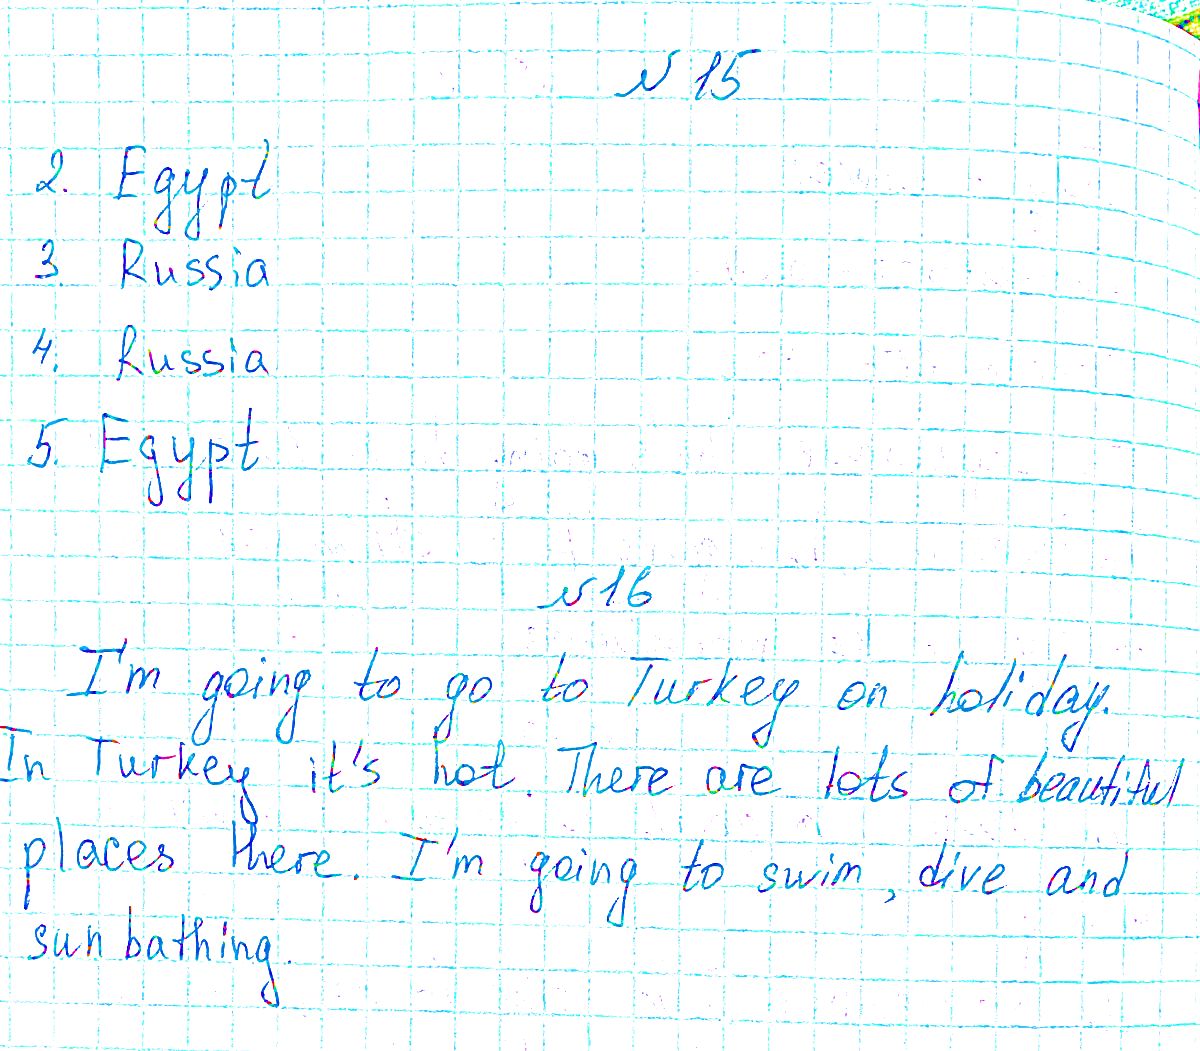 № 15
2. Egypt
3. Russia
4. Russia
5. Egypt
№ 16
I'm going to go to Turkey on holiday.
In Turkey it's hot. There are lots of beautiful
places there. I'm going to swim, dive and
sun bathing.